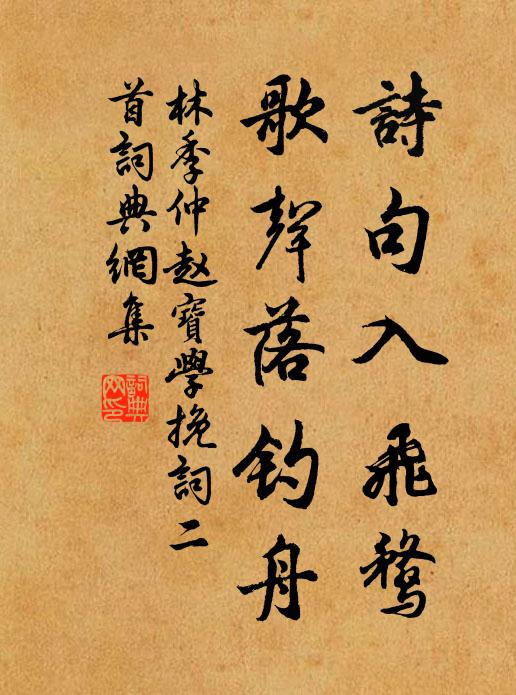 詩句入飛鶩
歌聲落釣舟
林季仲趙寶學挽詞二
首詞典網集
詞典網印